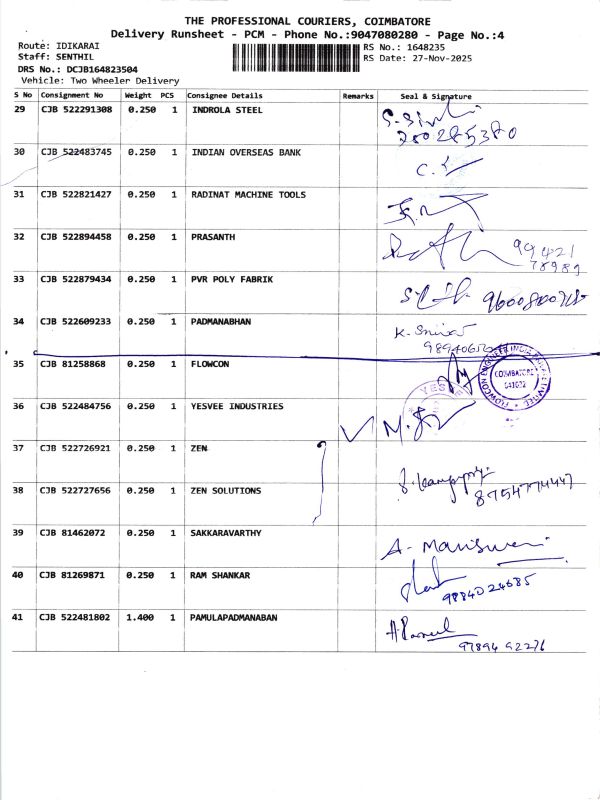 THE PROFESSIONAL COURIERS, COIMBATORE
Delivery Runsheet - PCM - Phone No.:9047080280 - Page No.:4
Route: IDIKARAI
Staff: SENTHIL
DRS No.: DCJB164823504
Vehicle: Two Wheeler Delivery
RS No.: 1648235
RS Date: 27-Nov-2025
S No Consignment No Weight PCS Consignee Details Remarks Seal & Signature
29 CJB 522291308 0.250 1 INDROLA STEEL
30 CJB 522483745 0.250 1 INDIAN OVERSEAS BANK
31 CJB 522821427 0.250 1 RADINAT MACHINE TOOLS
32 CJB 522894458 0.250 1 PRASANTH 99421
78989
33 CJB 522879434 0.250 1 PVR POLY FABRIK
34 CJB 522609233 0.250 1 PADMANABHAN
35 CJB 81258868 0.250 1 FLOWCON
COIMBATORE
641022
36 CJB 522484756 0.250 1 YESVEE INDUSTRIES
YES
37 CJB 522726921 0.250 1 ZEN
38 CJB 522727656 0.250 1 ZEN SOLUTIONS
39 CJB 81462072 0.250 1 SAKKARAVARTHY
40 CJB 81269871 0.250 1 RAM SHANKAR
9884024685
41 CJB 522481802 1.400 1 PAMULAPADMANABAN
97894 92276